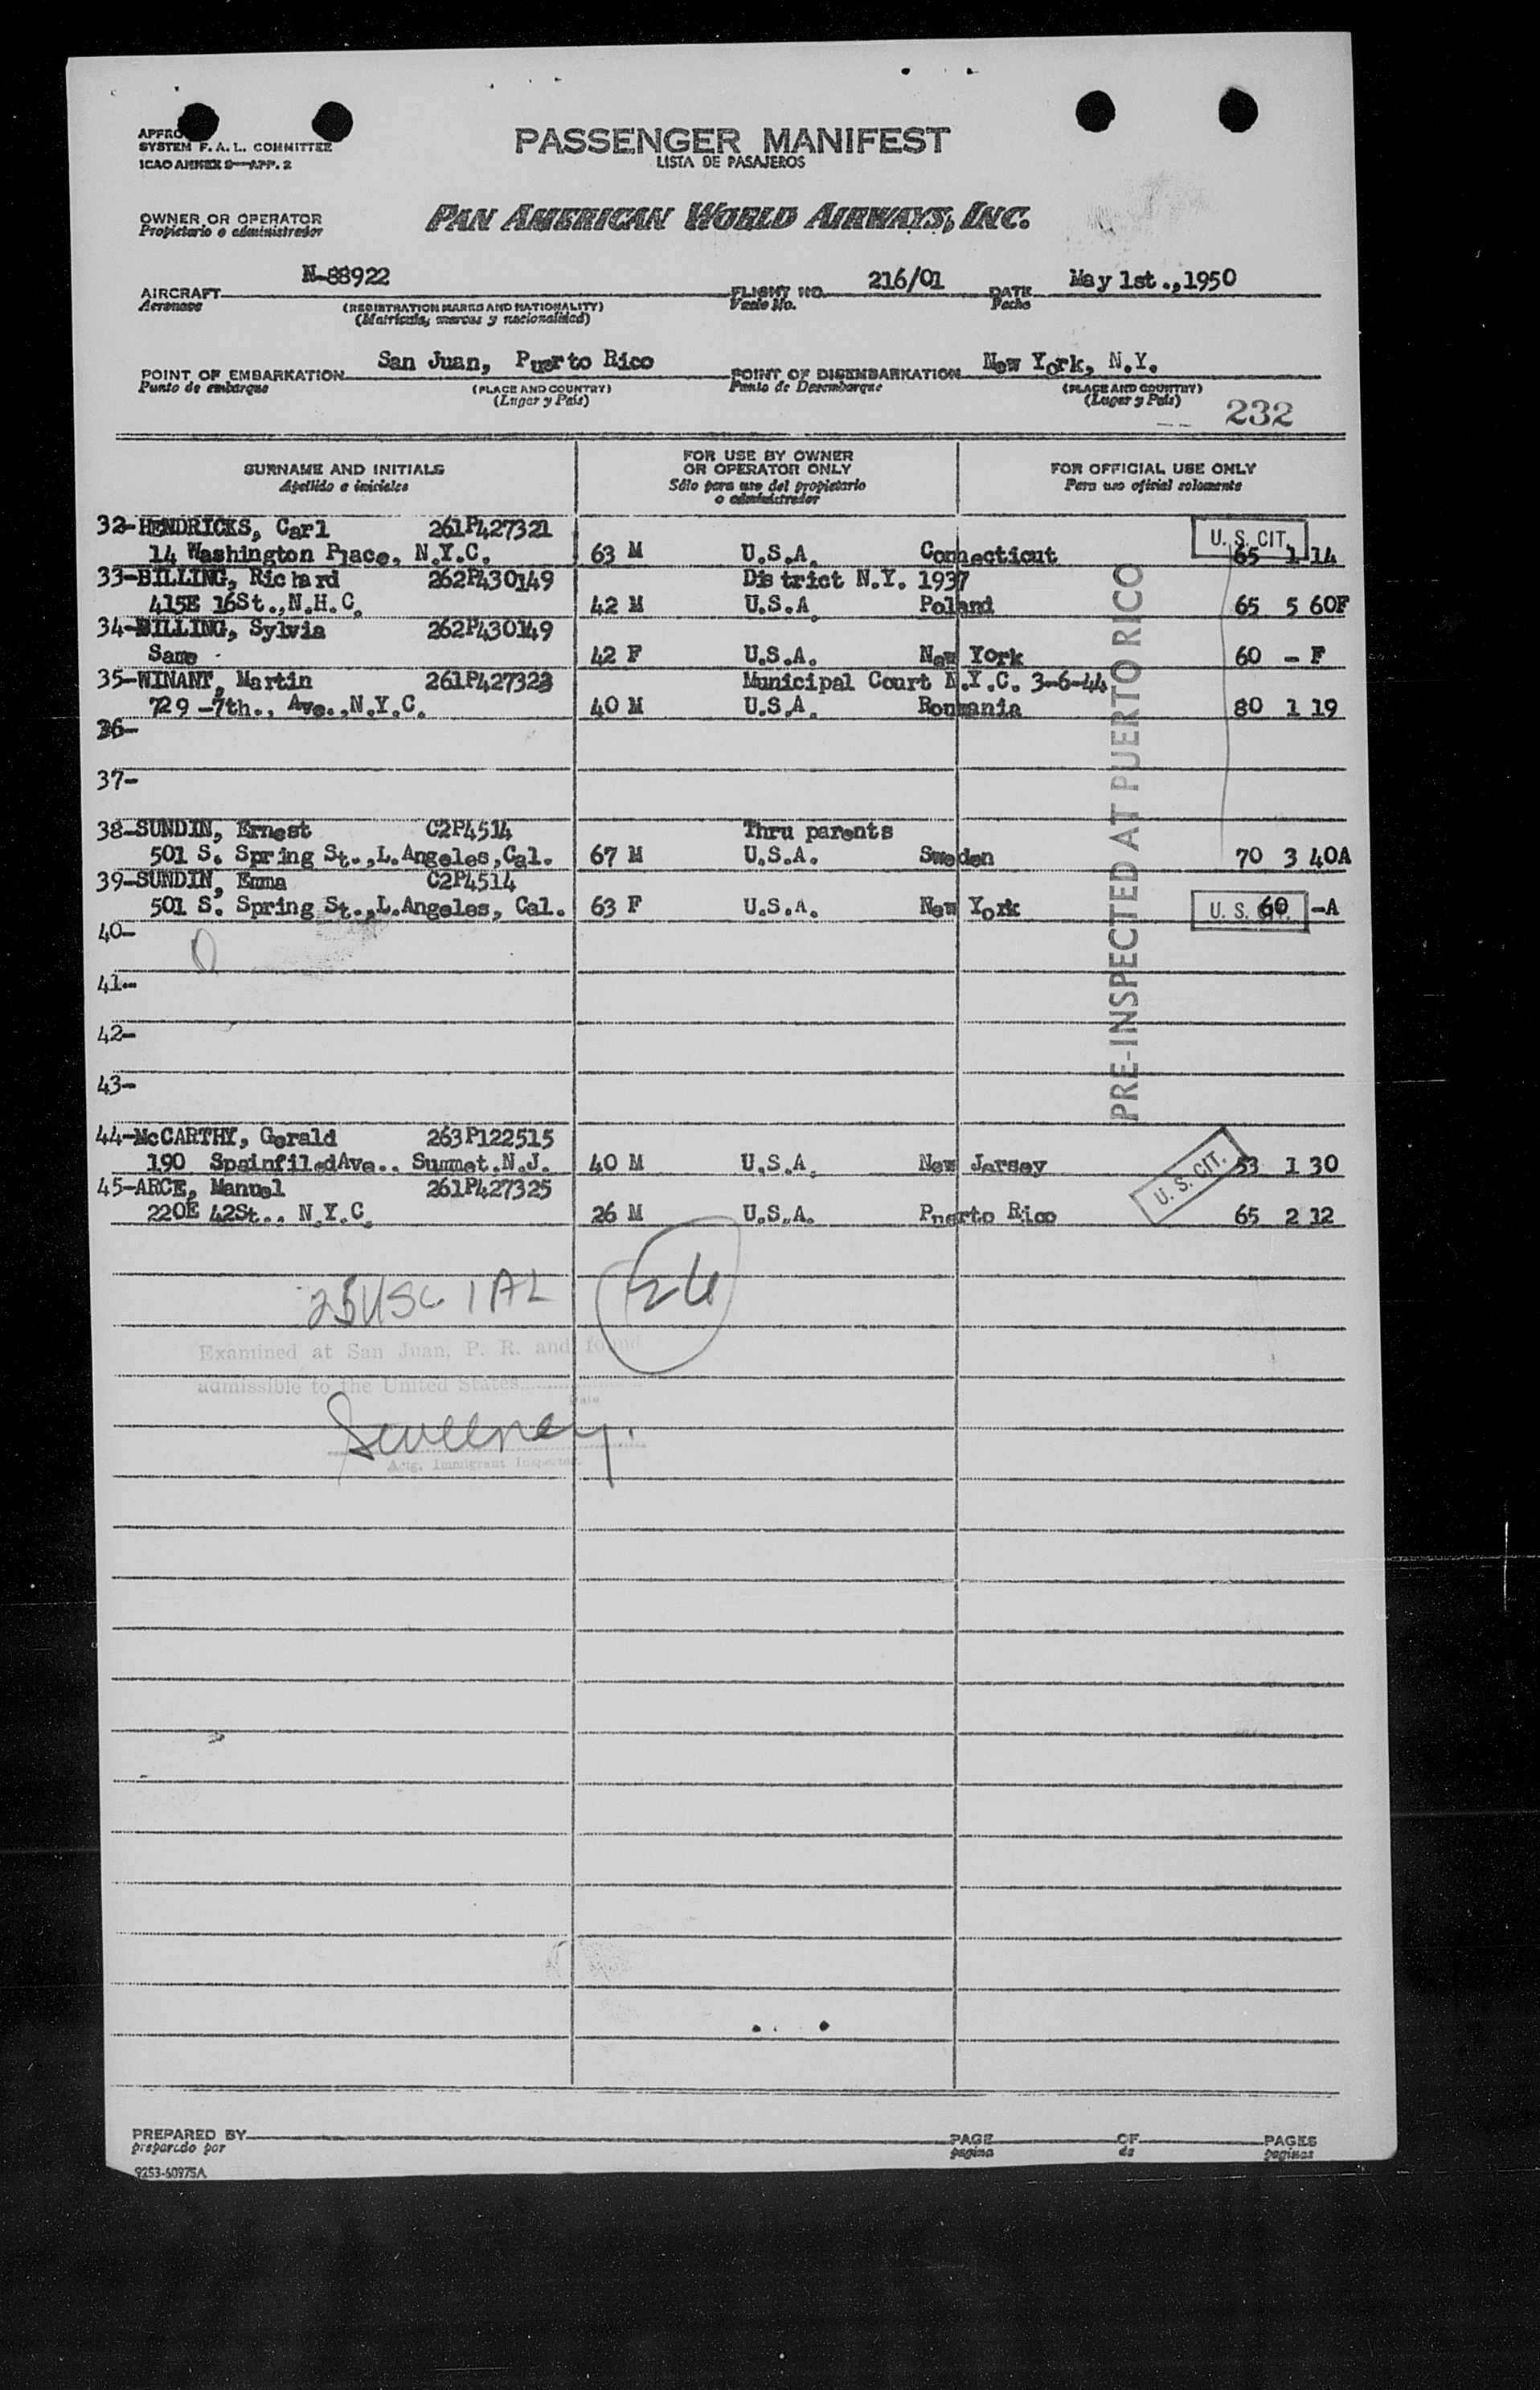 APPRO
SYSTEM F. A. L. COMMITTEE
ICAO ANNEX 9—APP. 2
PASSENGER MANIFEST
LISTA DE PASAJEROS
OWNER OR OPERATOR
Propietario o administrador
PAN AMERICAN WORLD AIRWAYS, INC.
AIRCRAFT N-88922 FLIGHT NO. 216/01 DATE May 1st.,1950
Aeronave (REGISTRATION MARKS AND NATIONALITY) Vuelo No. Fecha
(Matricula, marcas y nacionalidad)
POINT OF EMBARKATION San Juan, Puerto Rico POINT OF DISEMBARKATION New York, N.Y.
Punto de embarque (PLACE AND COUNTRY) Punto de Desembarque (PLACE AND COUNTRY)
(Lugar y País) (Lugar y País) 232
SURNAME AND INITIALS
Apellido e iniciales
FOR USE BY OWNER
OR OPERATOR ONLY
Sólo para uso del propietario
o administrador
FOR OFFICIAL USE ONLY
Para uso oficial solamente
32-HENDRICKS, Carl 261P427321 U. S. CIT.
14 Washington Place, N.Y.C. 63 M U.S.A. Connecticut 65 1 14
33-BILLING, Richard 262P430149 District N.Y. 1937
415E 16St.,N.H.C. 42 M U.S.A. Poland 65 5 60F
34-BILLING, Sylvia 262P430149
Same 42 F U.S.A. New York 60 - F
35-WINANT, Martin 261P427323 Municipal Court N.Y.C. 3-6-44
729 -7th., Ave.,N.Y.C. 40 M U.S.A. Roumania 80 1 19
36-
37-
38-SUNDIN, Ernest C2P4514 Thru parents
501 S. Spring St.,L.Angeles,Cal. 67 M U.S.A. Sweden 70 3 40A
39-SUNDIN, Emma C2P4514
501 S. Spring St.,L.Angeles, Cal. 63 F U.S.A. New York U. S. CIT. 60 -A
40-
41-
42-
43-
PRE-INSPECTED AT PUERTO RICO
44-McCARTHY, Gerald 263P122515
190 SpainfiledAve., Summet.N.J. 40 M U.S.A. New Jersey U. S. CIT. 53 1 30
45-ARCE, Manuel 261P427325
220E 42St., N.Y.C. 26 M U.S.A. Puerto Rico 65 2 12
25USC 1AL 26
Examined at San Juan, P. R. and found
admissible to the United States
Date
Sweeney.
Actg. Immigrant Inspector
PREPARED BY PAGE OF PAGES
preparado por pagina de paginas
9253-60975A